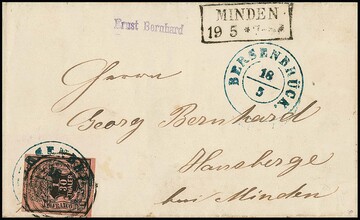 Ernst Bernhard
MINDEN
19 5
BERSENBRÜCK.
18
5
Herrn
Georg Bernhard
Hausberge
bei Minden